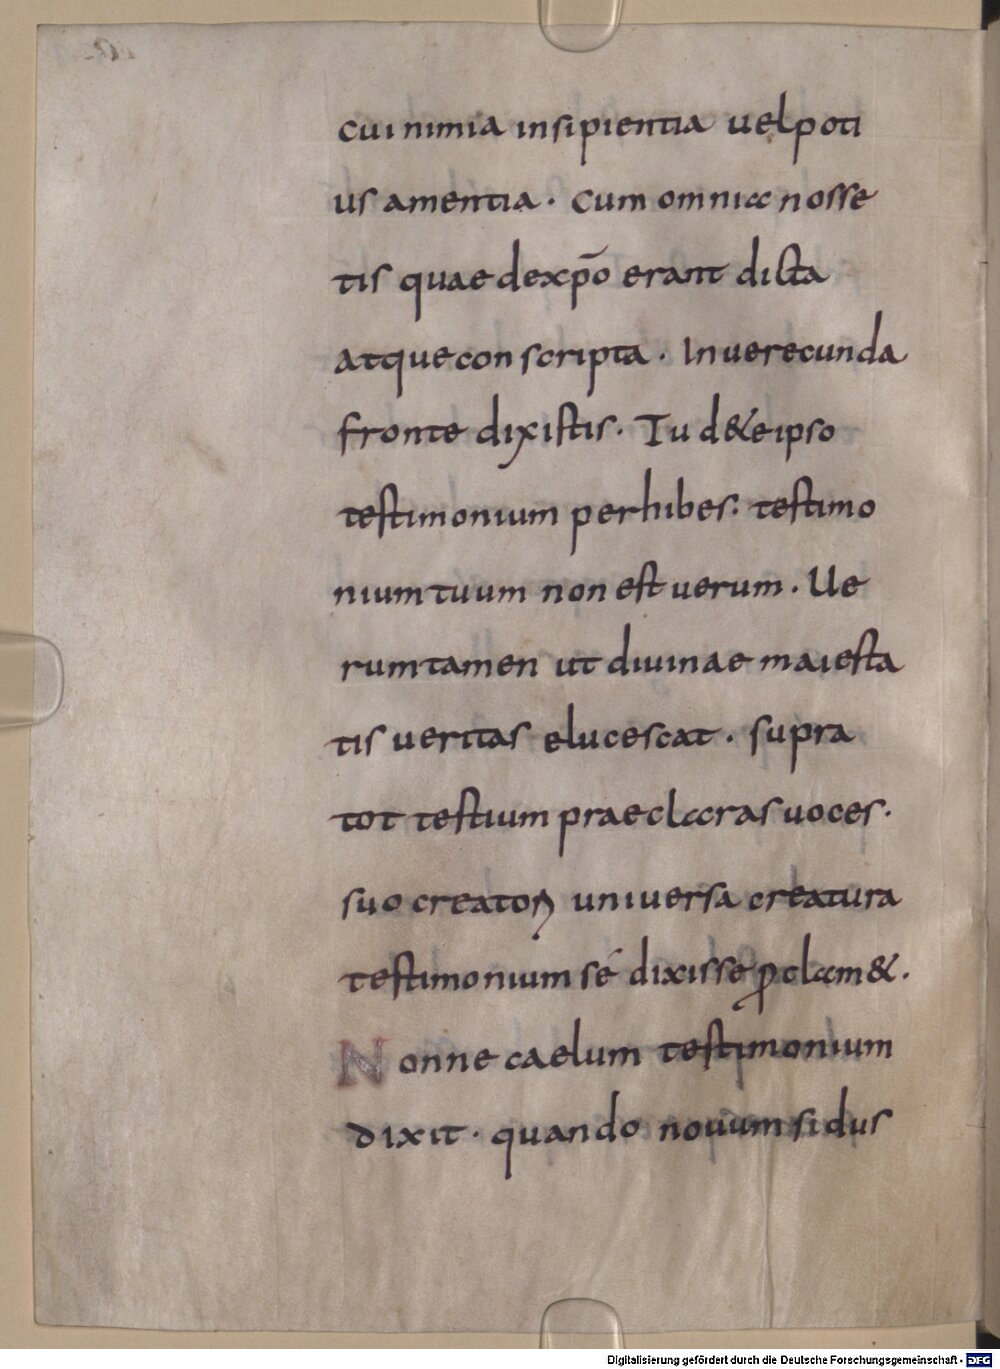 cui nimia insipientia uel poti
us amentia. Cum omnia nosse
tis quae de xp̄o erant dicta
atque conscripta. Inuerecunda
fronte dixistis. Tu d& e ipso
testimonium perhibes. testimo
nium tuum non est uerum. Ue
rum tamen ut diuinae maiesta
tis ueritas elucescat. supra
tot testium praeclaras uoces.
suo creatoꝝ uniuersa creatura
testimonium sé dixisse ꝓclam&.
Nonne caelum testimonium
dixit. quando nouum sidus
Digitalisierung gefördert durch die Deutsche Forschungsgemeinschaft - DFG